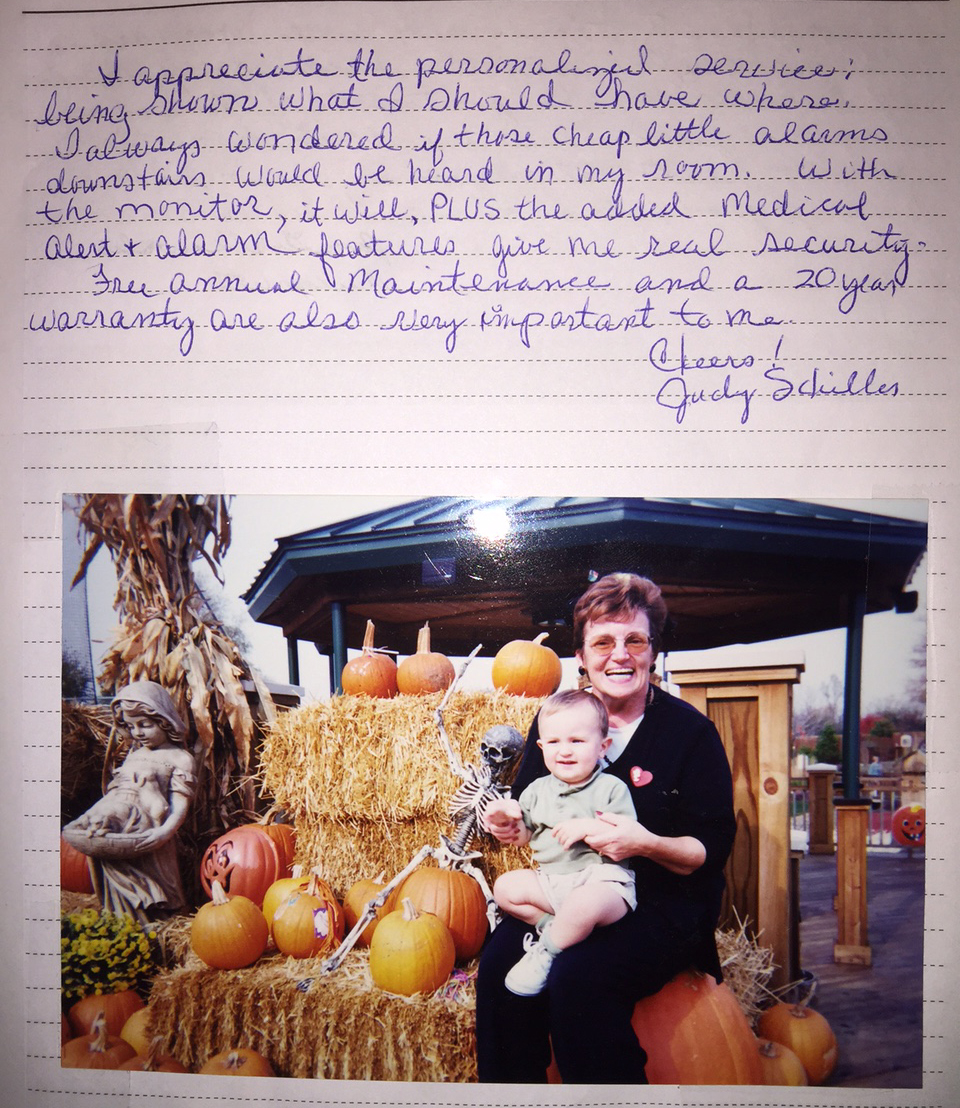 I appreciate the personalized service;
being shown what I should have where.
I always wondered if those cheap little alarms
downstairs would be heard in my room. With
the monitor, it will, PLUS the added Medical
alert + alarm features give me real security.
Free annual Maintenance and a 20 year
warranty are also very important to me.
Cheers!
Judy Schilles